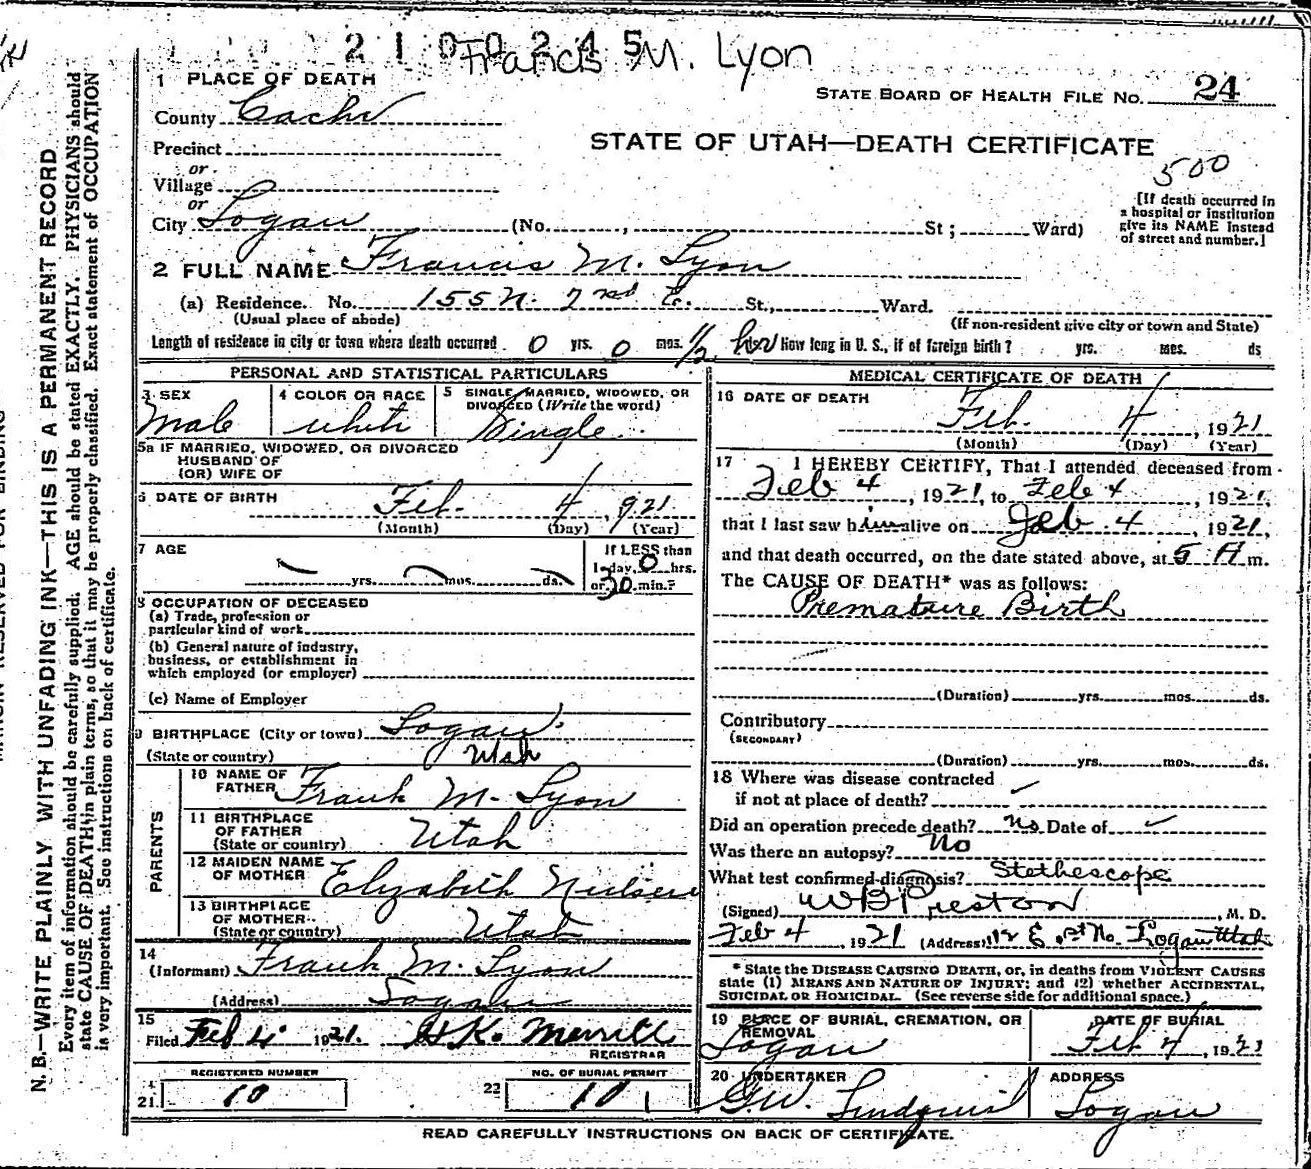 2100245
Francis M. Lyon
1 PLACE OF DEATH
STATE BOARD OF HEALTH FILE NO. 24
County Cache
STATE OF UTAH—DEATH CERTIFICATE
Precinct
500
or
Village
or
City Logan (No. , St; Ward)
[If death occurred in
a hospital or institution
give its NAME instead
of street and number.]
2 FULL NAME Francis M. Lyon
(a) Residence. No. 155 N. 2nd E. St., Ward.
(Usual place of abode) (If non-resident give city or town and State)
Length of residence in city or town where death occurred 0 yrs. 0 mos. 1/2 hor How long in U. S., if of foreign birth? yrs. mos. ds
PERSONAL AND STATISTICAL PARTICULARS
3 SEX Male
4 COLOR OR RACE white
5 SINGLE, MARRIED, WIDOWED, OR
DIVORCED (Write the word)
Single
5a IF MARRIED, WIDOWED, OR DIVORCED
HUSBAND OF
(OR) WIFE OF
6 DATE OF BIRTH Feb. 4, 921
(Month) (Day) (Year)
7 AGE yrs. mos. ds.
If LESS than
1 day, 0 hrs.
or 30 min.?
8 OCCUPATION OF DECEASED
(a) Trade, profession or
particular kind of work
(b) General nature of industry,
business, or establishment in
which employed (or employer)
(c) Name of Employer
9 BIRTHPLACE (City or town) Logan
(State or country) Utah
PARENTS
10 NAME OF
FATHER Frank M. Lyon
11 BIRTHPLACE
OF FATHER
(State or country) Utah
12 MAIDEN NAME
OF MOTHER Elizabeth Nielsen
13 BIRTHPLACE
OF MOTHER
(State or country) Utah
14
(Informant) Frank M. Lyon
(Address) Logan
15
Filed Feb 4, 1921. H K. Merrill
REGISTRAR
REGISTERED NUMBER
21. 10
NO. OF BURIAL PERMIT
22 10
MEDICAL CERTIFICATE OF DEATH
16 DATE OF DEATH
Feb. 4, 1921
(Month) (Day) (Year)
17 I HEREBY CERTIFY, That I attended deceased from
Feb 4, 1921, to Feb 4, 1921,
that I last saw him alive on Feb. 4, 1921,
and that death occurred, on the date stated above, at 5 A m.
The CAUSE OF DEATH* was as follows:
Premature Birth
(Duration) yrs. mos. ds.
Contributory
(SECONDARY)
(Duration) yrs. mos. ds.
18 Where was disease contracted
if not at place of death?
Did an operation precede death? No Date of
Was there an autopsy? No
What test confirmed diagnosis? Stethescope
(Signed) W B Preston, M. D.
Feb 4, 1921 (Address) 12 E 1st No. Logan Utah
* State the DISEASE CAUSING DEATH, or, in deaths from VIOLENT CAUSES
state (1) MEANS AND NATURE OF INJURY; and (2) whether ACCIDENTAL,
SUICIDAL OR HOMICIDAL. (See reverse side for additional space.)
19 PLACE OF BURIAL, CREMATION, OR
REMOVAL
Logan
DATE OF BURIAL
Feb 4, 1921
20 UNDERTAKER
G.W. Lindquist
ADDRESS
Logan
READ CAREFULLY INSTRUCTIONS ON BACK OF CERTIFICATE.
N. B.—WRITE PLAINLY WITH UNFADING INK—THIS IS A PERMANENT RECORD
Every item of information should be carefully supplied. AGE should be stated EXACTLY. PHYSICIANS should
state CAUSE OF DEATH in plain terms, so that it may be properly classified. Exact statement of OCCUPATION
is very important. See instructions on back of certificate.